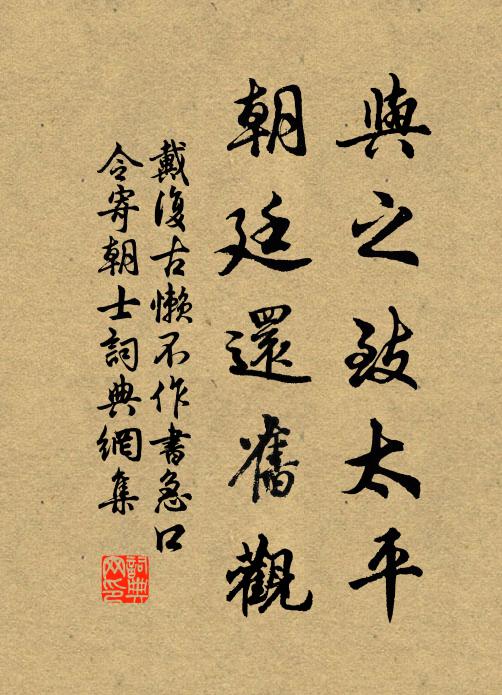 與之致太平
朝廷還舊觀
戴復古懶不作書急口
令寄朝士詞典網集
詞典
网印